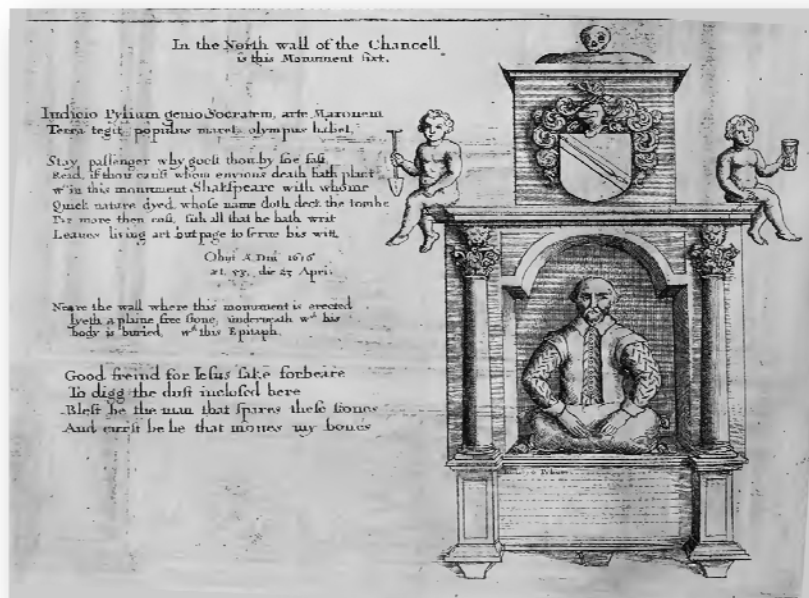 In the North wall of the Chancell
is this Monument fixt.
Iudicio Pylium genio Socratem, arte Maronem
Terra tegit, populus mæret, olympus habet,
Stay, passenger why goest thou by soe fast
Read, if thou canst whom envious death hath plast
wth in this monument Shakspeare with whome
Quick nature dyed, whose name doth deck the tombe
Far more then cost, sith all that he hath writ
Leaues living art but page to serue his witt
Obijt A. Dni 1616
æt. 53, die 23 Apri.
Neare the wall where this monument is erected
lyeth a plaine free stone, underneath wch his
body is buried, wth this Epitaph.
Good freind for Iesus sake forbeare
To digg the dust inclosed here
Blest be the man that spares these stones
And curst be he that moues my bones